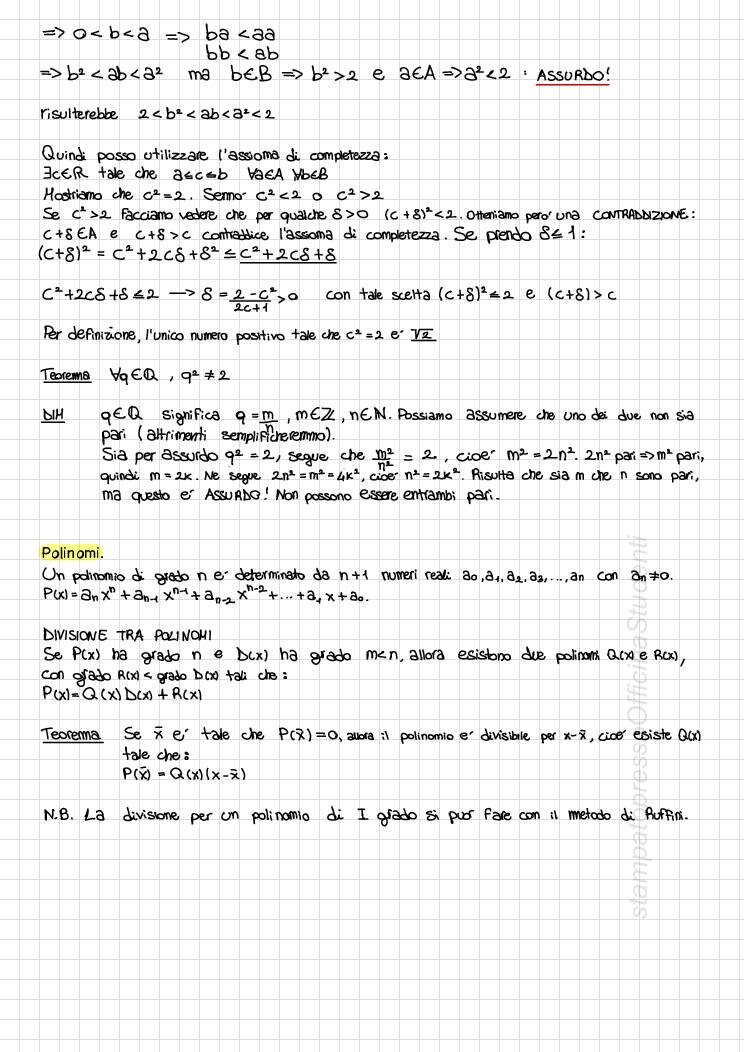 => 0<b<a => ba<aa
bb<ab
=> b²<ab<a² ma b∈B => b²>2 e a∈A => a²<2 : ASSURDO!
risulterebbe 2<b²<ab<a²<2
Quindi posso utilizzare l'assioma di completezza:
∃c∈R tale che a≤c≤b ∀a∈A ∀b∈B
Mostriamo che c²=2. Senno' c²<2 o c²>2
Se c²>2 facciamo vedere che per qualche δ>0 (c+δ)²<2. Otteniamo pero' una CONTRADDIZIONE:
c+δ∈A e c+δ>c contraddice l'assioma di completezza. Se prendo δ≤1:
(c+δ)² = c²+2cδ+δ² ≤ c²+2cδ+δ
c²+2cδ+δ≤2 —> δ = (2-c²)/(2c+1) >0 con tale scelta (c+δ)²≤2 e (c+δ)>c
Per definizione, l'unico numero positivo tale che c²=2 e' √2
Teorema ∀q∈Q , q²≠2
DIM q∈Q significa q=m/n, m∈Z, n∈N. Possiamo assumere che uno dei due non sia
pari (altrimenti semplificheremmo).
Sia per assurdo q²=2, segue che m²/n² = 2, cioe' m²=2n². 2n² pari => m² pari,
quindi m=2k. Ne segue 2n²=m²=4k², cioe' n²=2k². Risulta che sia m che n sono pari,
ma questo e' ASSURDO! Non possono essere entrambi pari.
Polinomi.
Un polinomio di grado n e' determinato da n+1 numeri reali a₀,a₁,a₂,a₃,...,an con an≠0.
P(x)=aₙxⁿ+aₙ₋₁xⁿ⁻¹+aₙ₋₂xⁿ⁻²+...+a₁x+a₀.
DIVISIONE TRA POLINOMI
Se P(x) ha grado n e D(x) ha grado m<n, allora esistono due polinomi Q(x) e R(x),
con grado R(x) < grado D(x) tali che:
P(x)=Q(x)D(x)+R(x)
Teorema Se x̄ e' tale che P(x̄)=0, allora il polinomio e' divisibile per x-x̄, cioe' esiste Q(x)
tale che:
P(x̄) = Q(x)(x-x̄)
N.B. La divisione per un polinomio di I grado si puo' fare con il metodo di Ruffini.
stampatopressoOfficinaStudenti